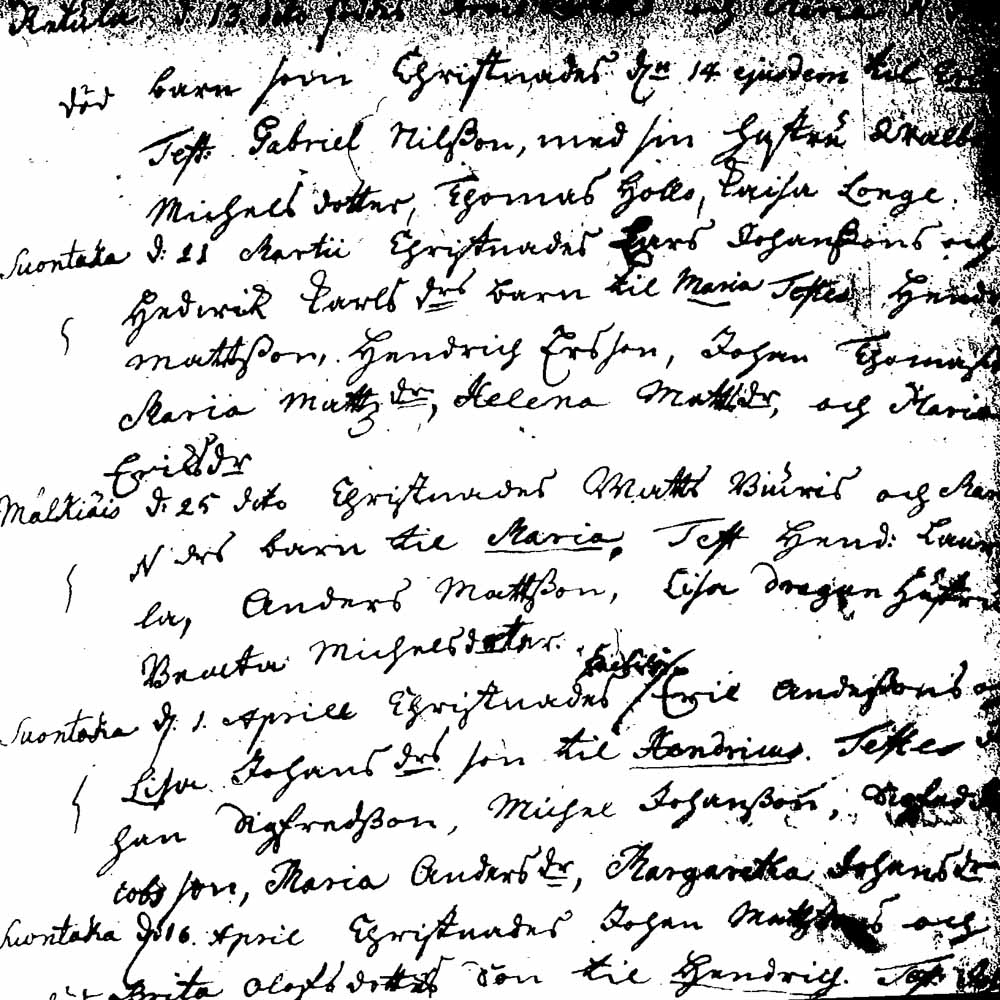 Ketula d. 13 dito föddes och Maria N
död barn som Christnades dn 14 ejusdem til
Test: Gabriel Nilßon, med sin hustru Walb
Michels dotter, Thomas Hollo, Caisa Longe.
Suontaka d: 21 Martii Christnades Lars Johanßons och
Hedwik Carls drs barn til Maria Testes Hend
Mattßon, Hendrich Ersson, Johan Thomas
Maria Matts dr, Helena Matts dr, och Maria
Eriks dr
Målkiäis d: 25 dito Christnades Matts Biuris och Mar
N drs barn til Maria, Test Hend: Laur
la, Anders Mattßon, Lisa dragun hustru
Beata Michelsdotter.
Suontaka d. 1. Aprill Christnades Eric Anderßons
Lisa Johans drs son til Hendricus. Testes
han Sigfredßon, Michel Johanßon, Sigfred
cobs son, Maria Anders dr, Margaretha Johans dr
Suontaka d. 16. April Christnades Johan och
Brita Olofs dotters son til Hendrich. Test: